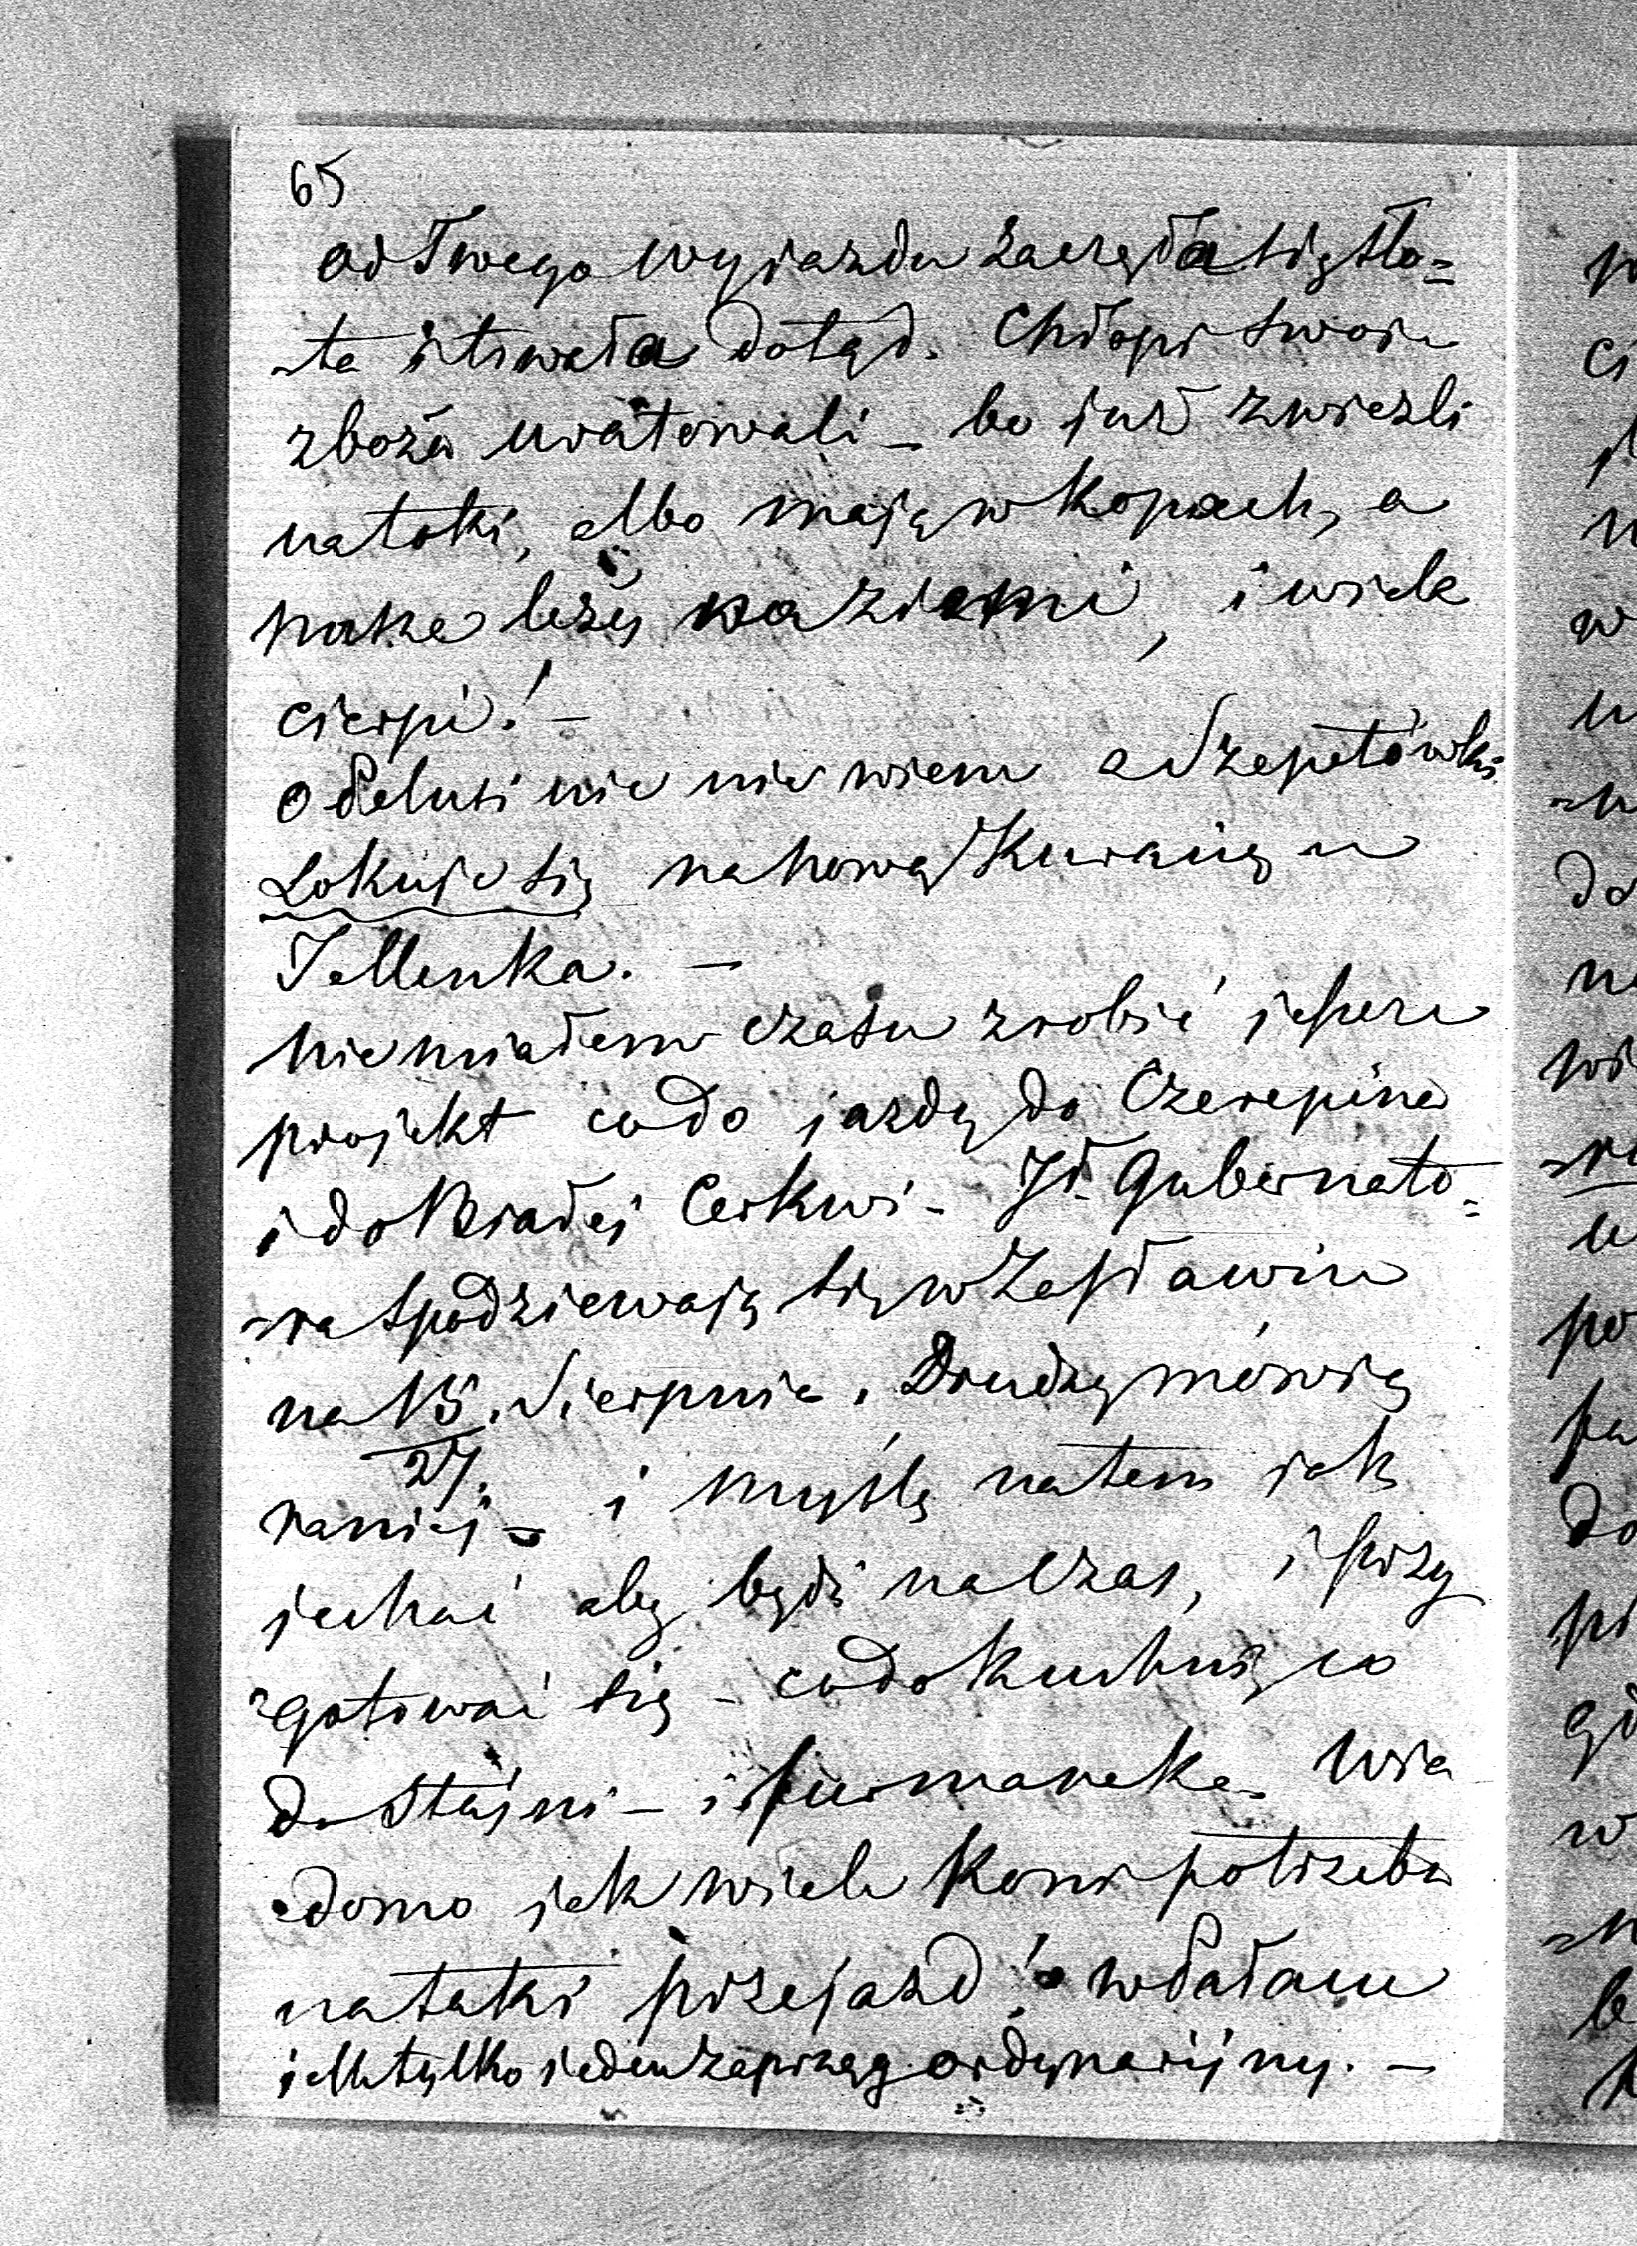 65
od Twego wyjazdu zaczęła się sło=
ta i trwała dotąd. Chłopi swoje
zboża uratowali – bo już zwieźli
na toki, albo mają w kopach, a
nasze leżą na ziemi, i wiele
cierpi! –
O Felusi nic nie wiem a Szepetówki
Lokuje się na nową Kuranię u
Jellenka. –
Nie miałem czasu zrobić jeszcze
projekt co do jazdy do Czerepina
i do Białej Cerkwi – Jł. Gubernato=
=ra spodziewają się w Zasławiu
na 15. Sierpnia. Drudzy mówią
27.
raniej – i myślę na tem jak
jechać aby być na czas, i przy
=gotować się – co do kuchni, co
do stajni – i furmanka. Wia
=domo jak wiele koni potrzeba
na taki przejazd!
i tylko jeden zaprząg ordynaryjny. –